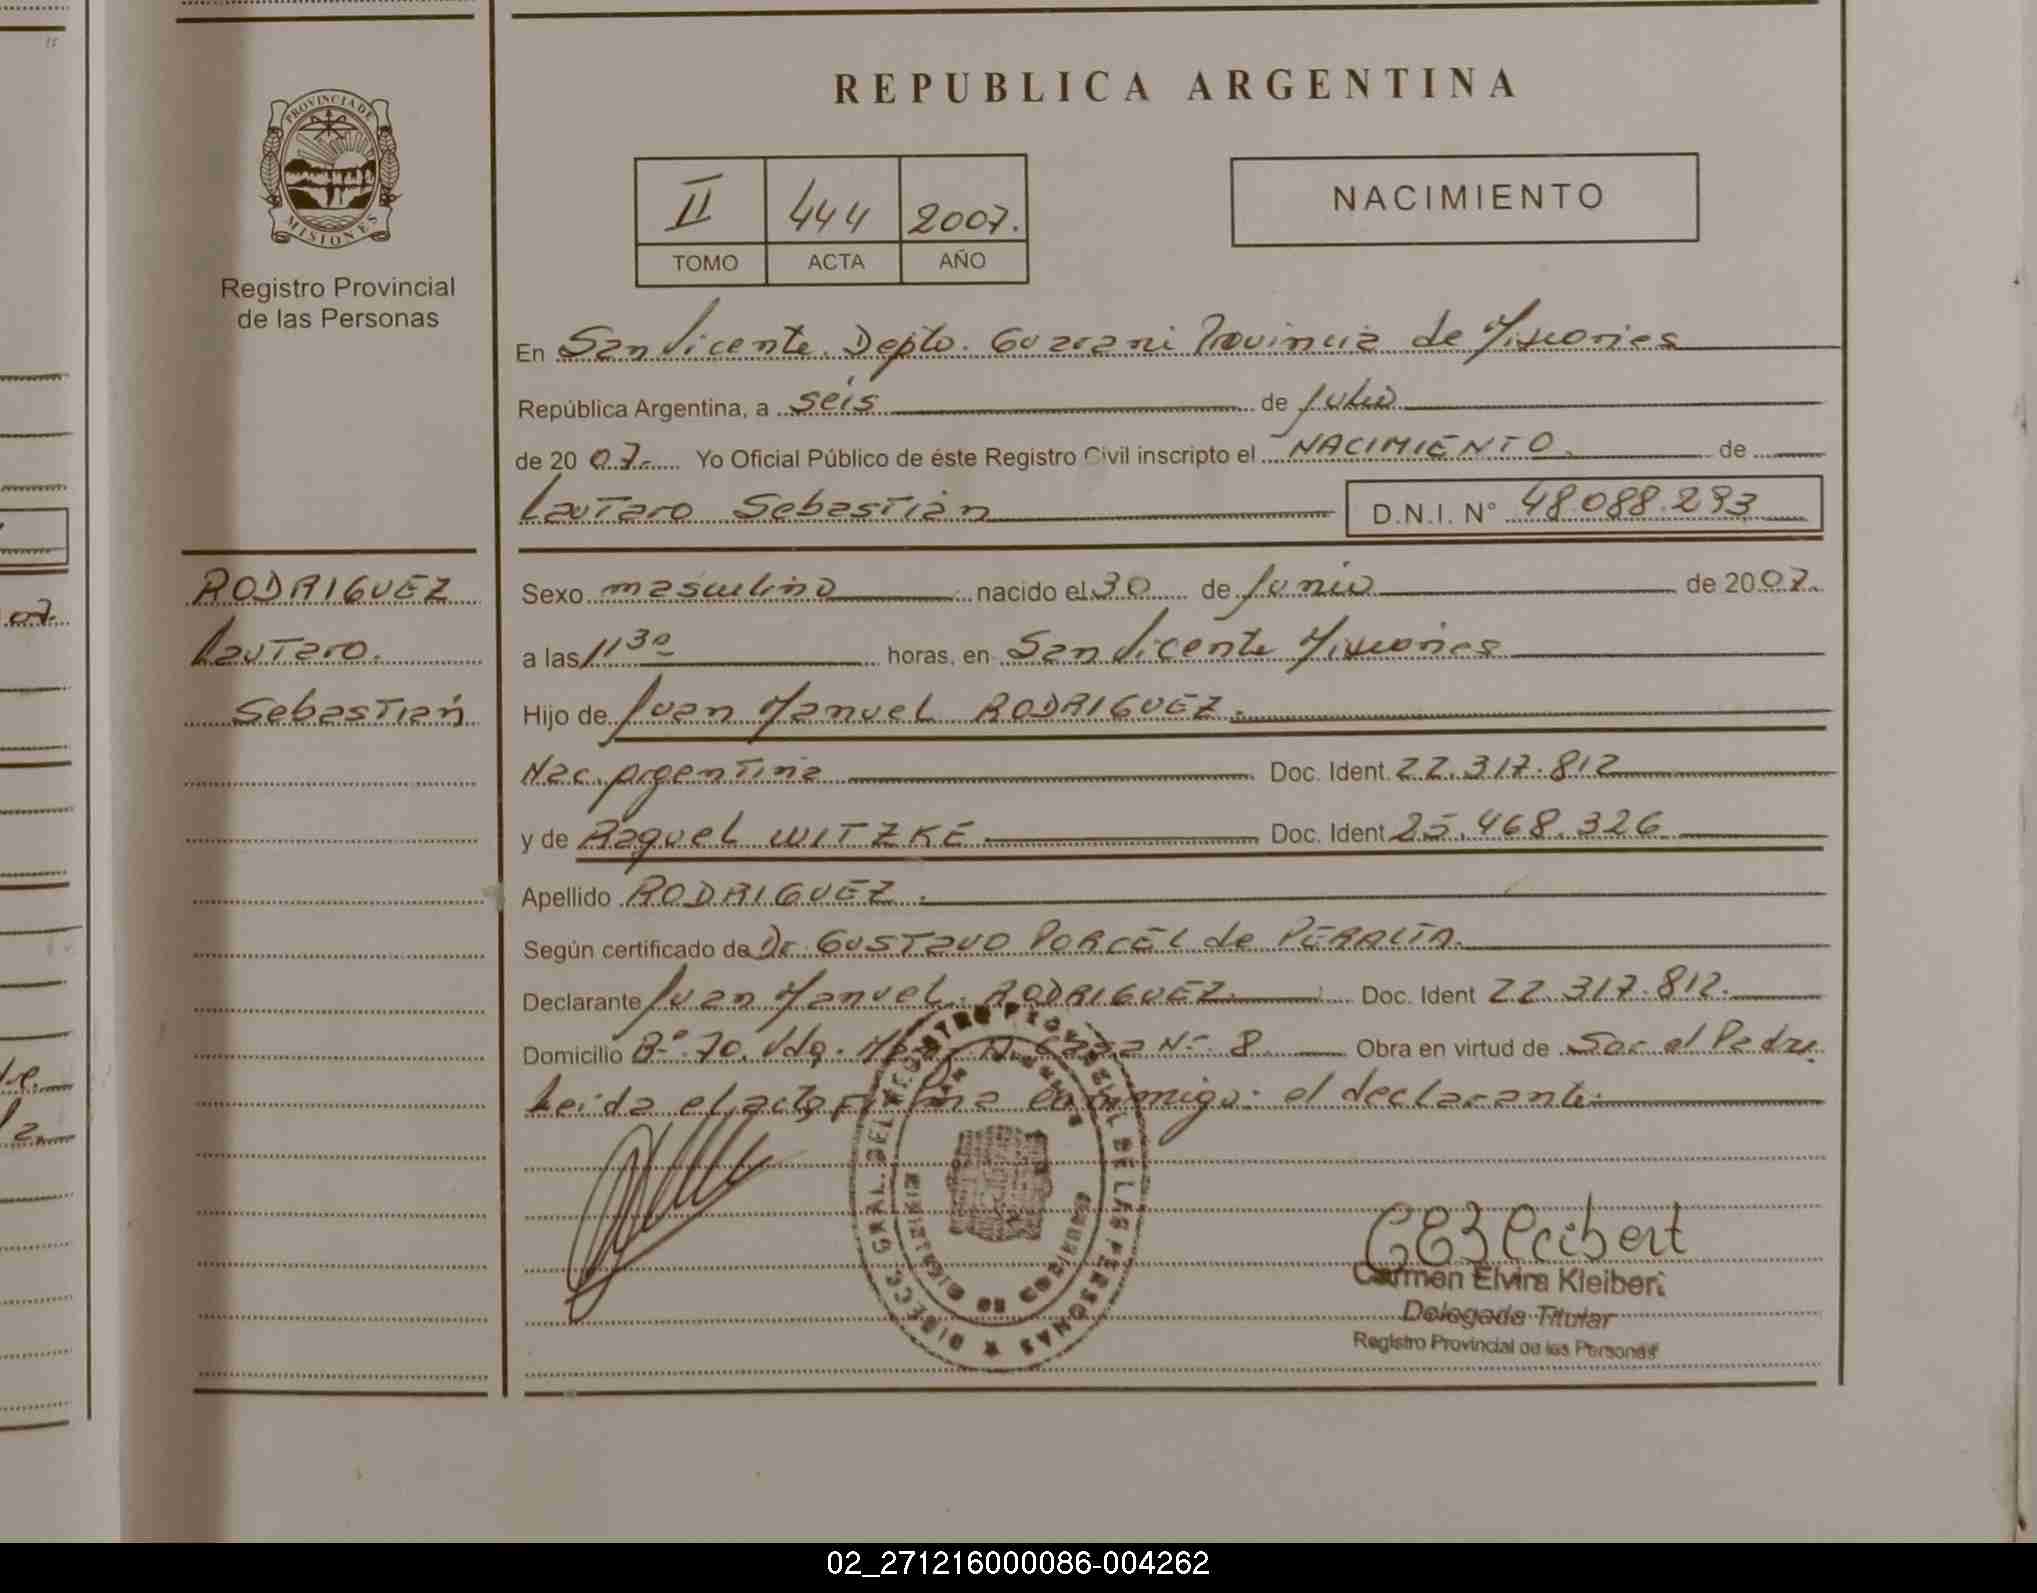 REPUBLICA ARGENTINA
PROVINCIA DE
MISIONES
Registro Provincial
de las Personas
II 444 2007.
TOMO ACTA AÑO
NACIMIENTO
En San Vicente Depto. Guarani Provincia de Misiones
República Argentina, a seis de Julio
de 2007. Yo Oficial Público de éste Registro Civil inscripto el NACIMIENTO. de
Lautaro Sebastián D.N.I. N° 48.088.293
RODRIGUEZ
Lautaro.
Sebastián
Sexo masculino nacido el 30 de Junio de 2007.
a las 11 30 horas, en San Vicente Misiones
Hijo de Juan Manuel RODRIGUEZ.
Nac. argentina Doc. Ident. 22.317.812
y de Raquel WITZKE Doc. Ident. 25.468.326
Apellido RODRIGUEZ.
Según certificado de Dr. Gustavo PORCEL de PERALTA.
Declarante Juan Manuel RODRIGUEZ. Doc. Ident 22.317.812.
Domicilio B° 70. Vdas. Casa N° 8 Obra en virtud de Ser el Padre.
Leida el acta firma conmigo: el declarante.
DIRECC. GRAL. DEL REGISTRO PROVINCIAL DE LAS PERSONAS
CEKleibert
Carmen Elvira Kleibert
Delegada Titular
Registro Provincial de las Personas
02_271216000086-004262